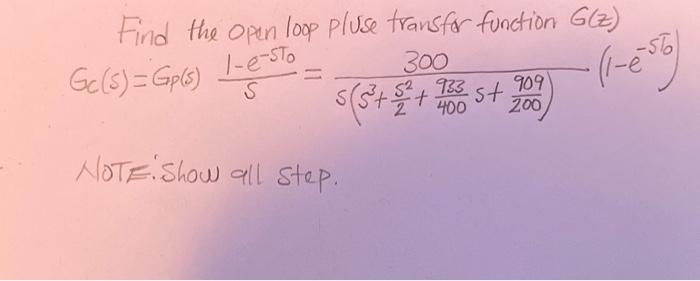 Find the open loop pluse transfer function G(z)
Gc(s)=Gp(s) \frac{1-e^{-ST_0}}{S} = \frac{300}{s(s^3+\frac{s^2}{2}+\frac{933}{400}s+\frac{909}{200})} (1-e^{-ST_0})
NOTE: Show all step.